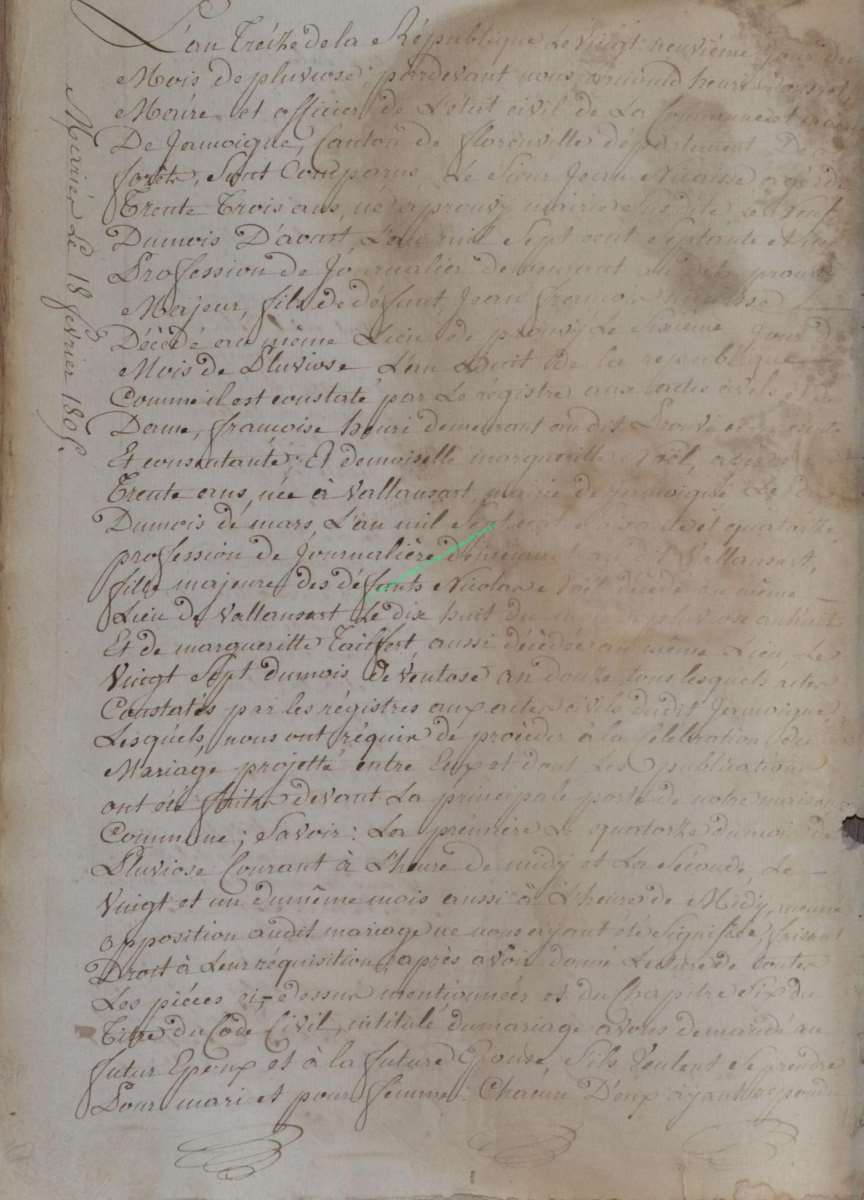 L'an Treize de la République Le Vingt neuvième jour du
Mois de pluviose pardevant nous armand henri
Maire et officier de L'etat civil de La Commune et
De Jamoigne, Canton de florenville département De
forêts, Sont Comparus Le Sieur Jean Nicaisse agé de
Trente Trois ans, né a prouvy mairie Susdite Le
Dumois D'avout, L'an mil Sept cent septante et
Profession de Journalier demeurant au dit prouvi
Majeur, fils de défunt Jean françois nicaisse
Décédé au même Lieu de prouvy Le Sixième jour du
Mois de Pluviose L'an huit de la republique
Comme il est constaté par Le régistre aux actes civils et de
Dame, francoise henri demeurant audit Prouvi et présente
Et consentante; Et demoiselle margueritte noël, agée de
Trente ans, née à Vallansart, mairie de Jamoigne Le dix
Dumois de mars, L'an mil Sept cent et quatorze
profession de Journalière demeurant au dit Vallansart,
fille majeure des défunts Nicolas noël décédé au même
Lieu de Vallansart Le dix huit du mois de pluviose an huit
Et de margueritte Taiffort aussi décédée au même Lieu, Le
Vingt Sept dumois de Ventose an douze tous lesquels actes
Constatés par les régistres aux actes civils dudit Jamoigne,
Lesquels, nous ont réquir de procéder à la Célébration du
Mariage projetté entre Eux et dont Les publications
ont été faites devant La principale porte de notre maison
Commune; Savoir: La première Le quatorze dumois de
Pluviose Courant à L'heure de midy et La Séconde, Le
Vingt et un du même mois aussi à L'heure de Midy, aucune
opposition audit mariage ne nous ayant été Signifiée, faisant
Droit à Leur réquisition, après avoir donné Lecture de toutes
Les pièces ci-dessus mentionnées et du Chapitre Six du
Titre du Code Civil, intitulé du mariage avons demandé au
futur Epoux et à la future Epouse, S'ils Veulent se prendre
Pour mari et pour femme: Chacun D'eux ayant repondu
Mariés Le 18 fevrier 1805.